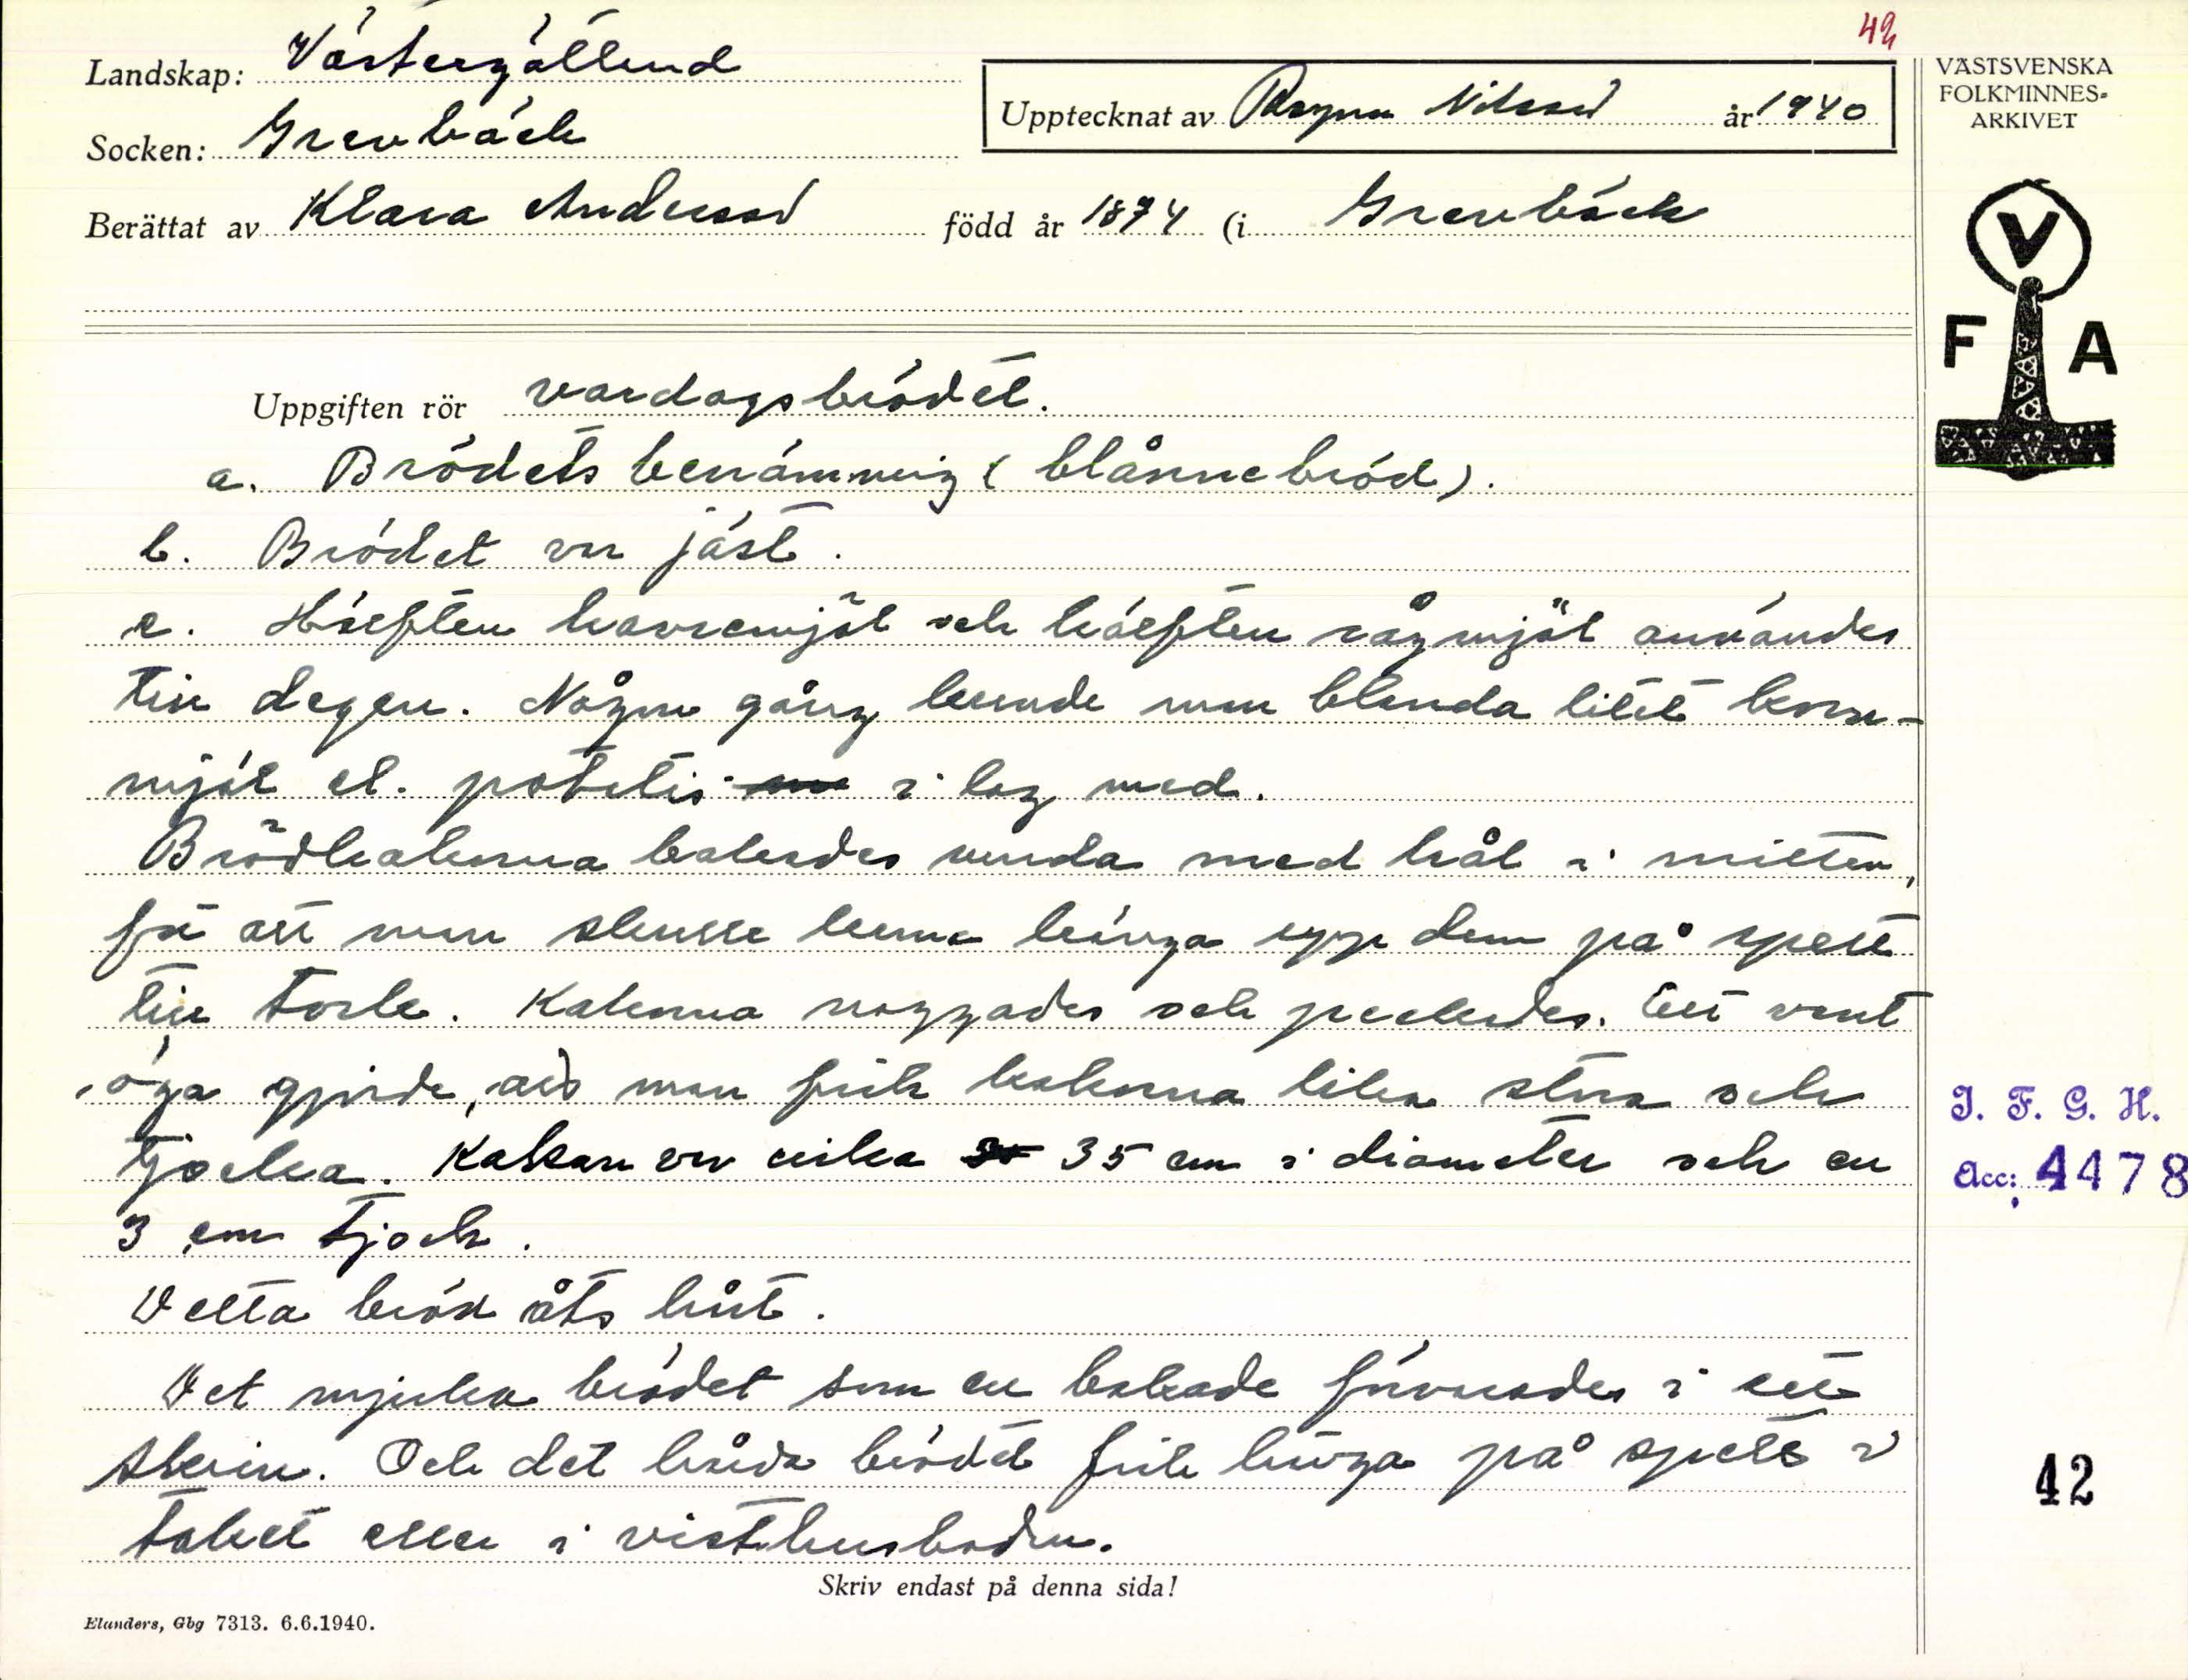 42
Landskap: Västergötland
Socken: Grevbäck
Upptecknat av Ragnar Nilsson år 1940
Berättat av Klara Andersson född år 1874 (i Grevbäck
VÄSTSVENSKA
FOLKMINNES-
ARKIVET
V
F A
Uppgiften rör vardagsbrödet.
a. Brödets benämning (blånnebröd).
b. Brödet var jäst.
c. Hälften havremjöl och hälften rågmjöl användes
till degen. Någon gång kunde man blanda litet korn-
mjöl el. potatis i lag med.
Brödkakorna bakades runda med hål i mitten,
för att man skulle kunna hänga upp dem på spett
till tork. Kakorna naggades och pickades. Ett vant
öga gjorde, att man fick kakorna lika stora och
tjocka. Kakan var cirka 35 cm i diameter och en
3 cm tjock.
Detta bröd åts hårt.
Det mjuka brödet som en bakade förvarades i ett
skrin. Och det hårda brödet fick hänga på spett i
taket eller i visthusboden.
Skriv endast på denna sida!
Elanders, Gbg 7313. 6.6.1940.
I. F. G. H.
Acc: 4478
42